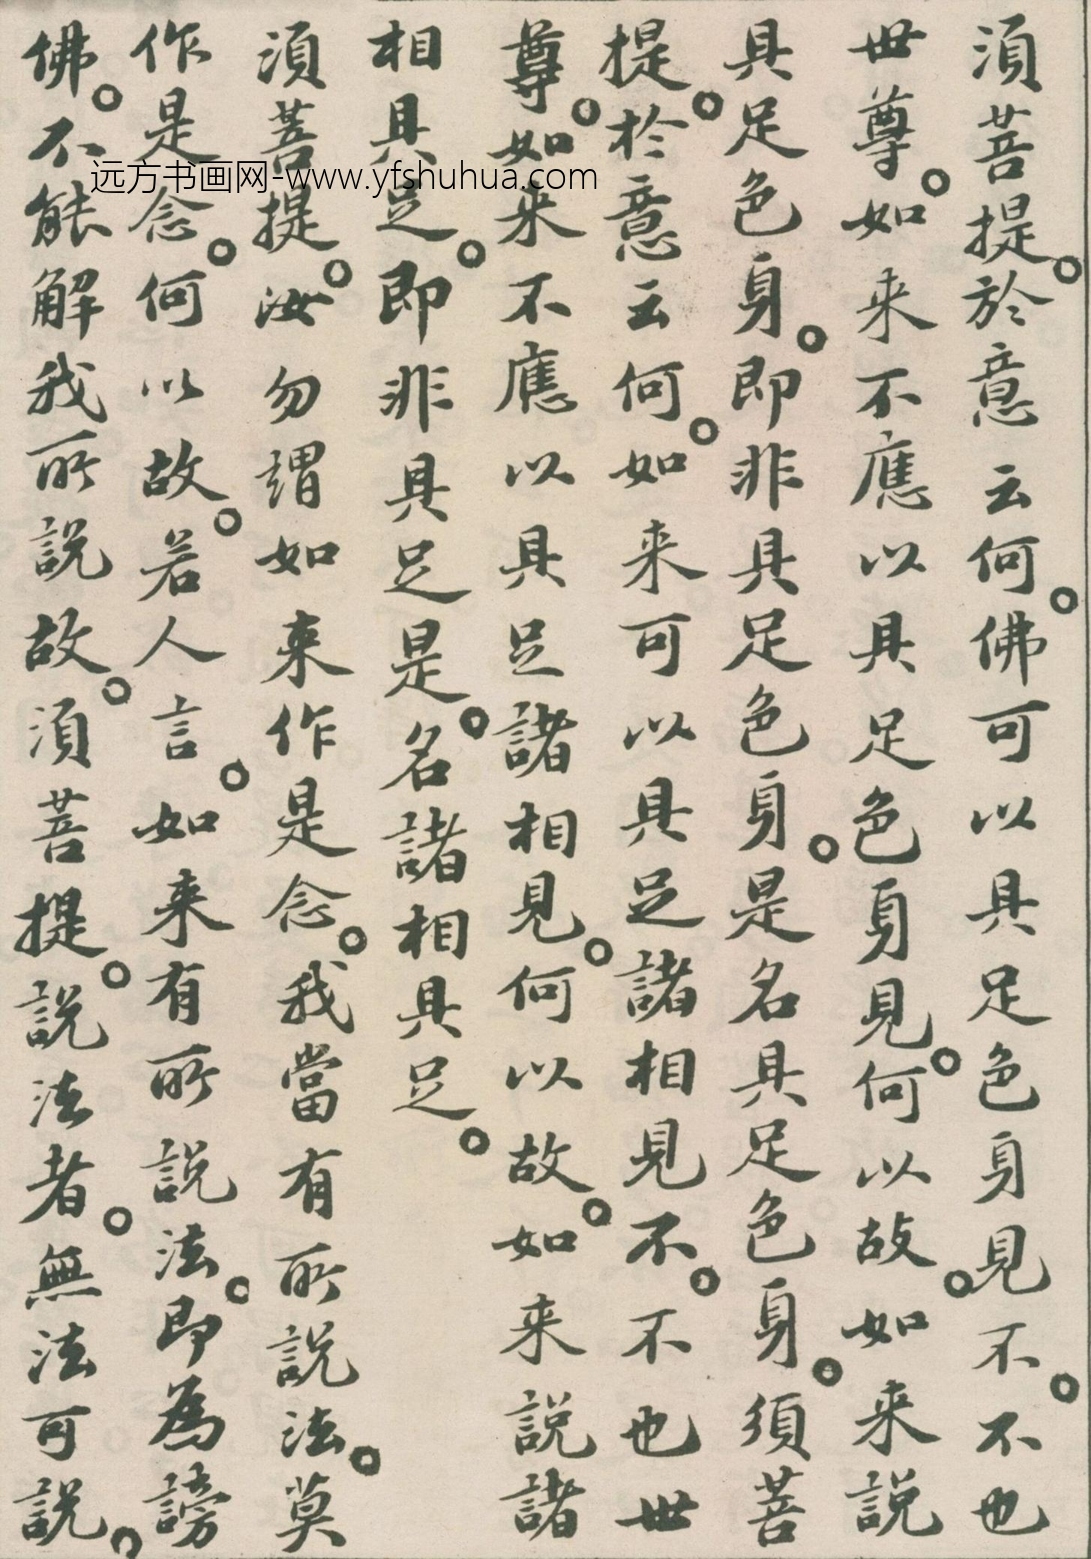 須菩提於意云何佛可以具足色身見不不也
世尊如来不應以具足色身見何以故如来説
具足色身即非具足色身是名具足色身須菩
提於意云何如来可以具足諸相見不不也世
尊如来不應以具足諸相見何以故如来説諸
相具足即非具足是名諸相具足
須菩提汝勿謂如来作是念我當有所説法莫
作是念何以故若人言如来有所説法即為謗
佛不能解我所説故須菩提説法者無法可説
远方书画网-www.yfshuhua.com